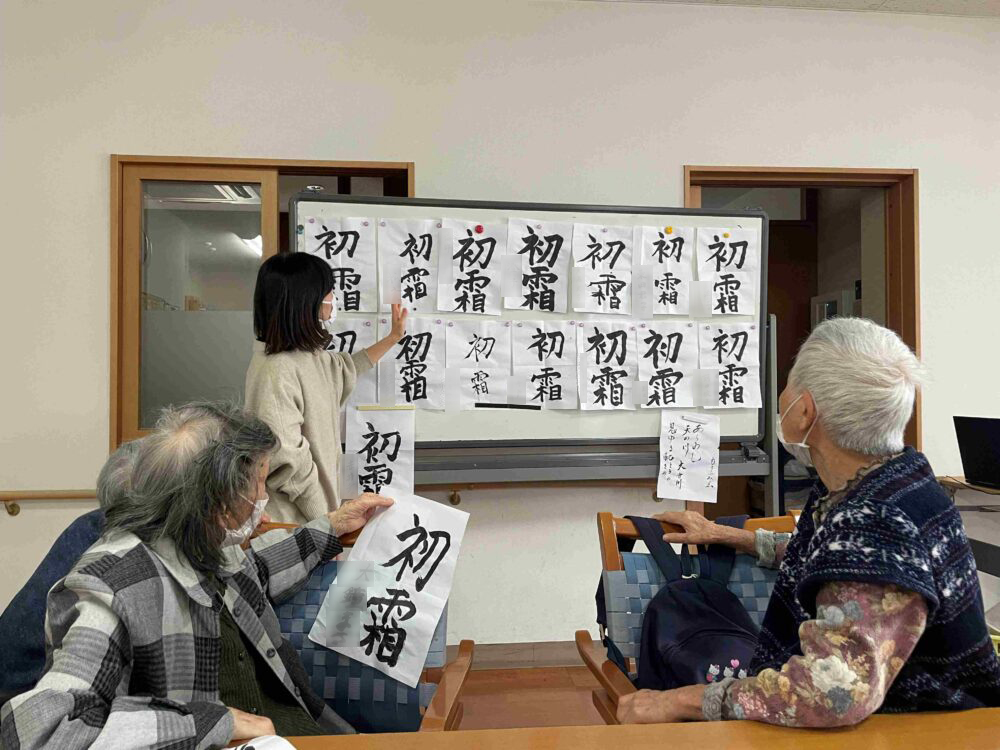 初霜
初霜
初霜
初霜
初霜
初霜
初霜
初霜
初霜
初霜
初霜
初霜
初霜
初
初霜
初霜